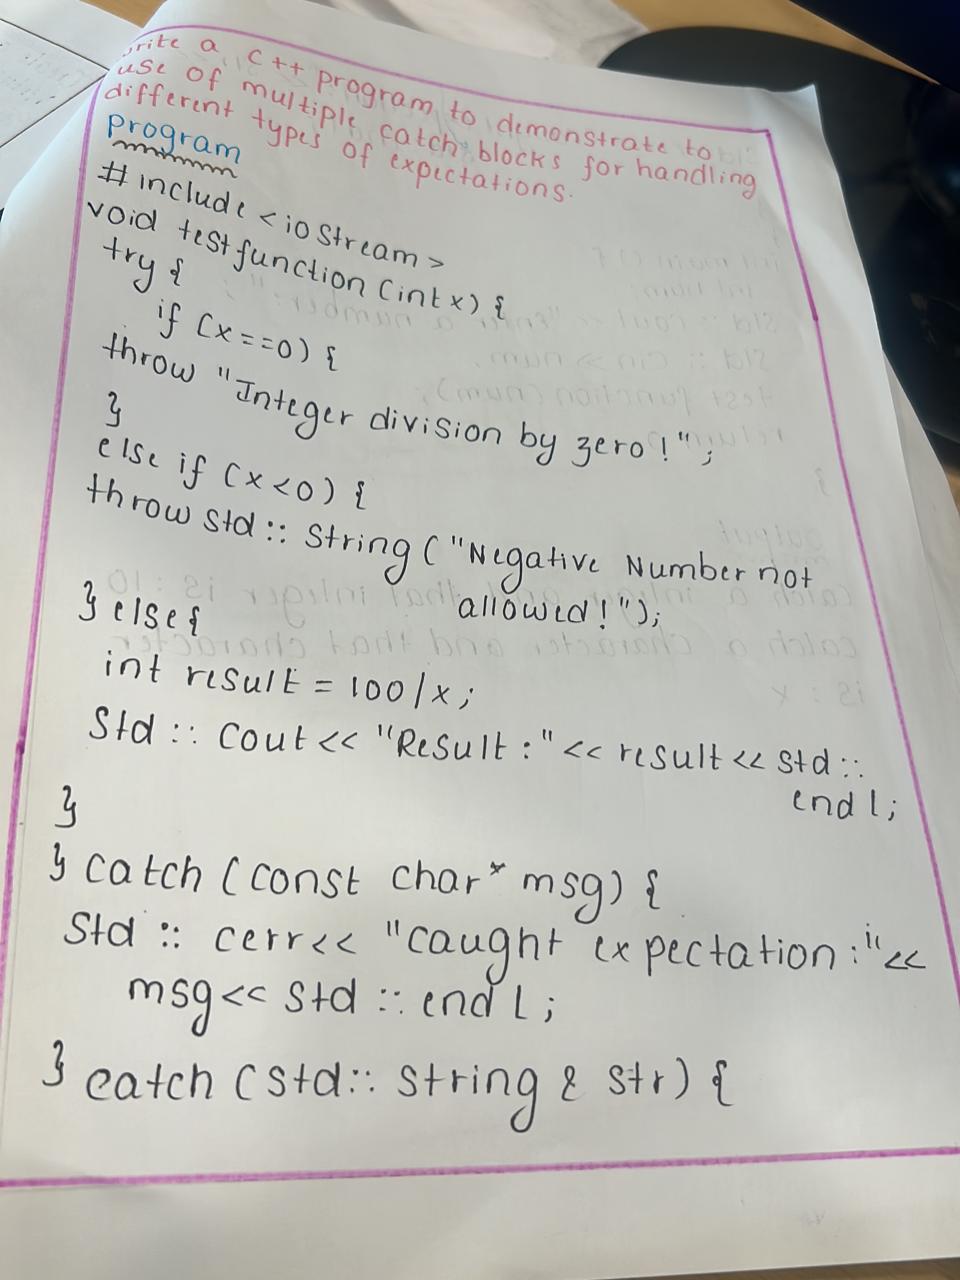 write a C++ program to demonstrate to
use of multiple catch blocks for handling
different types of expectations.
program
#include <ioStream>
void testfunction (int x) {
try {
if (x==0) {
throw "Integer division by zero!";
}
else if (x<0) {
throw std :: string ("Negative Number not
allowed!");
} else {
int result = 100/x;
Std :: cout << "Result :" << result << std ::
endl;
}
} catch (const char* msg) {
Std :: cerr<< "caught expectation :" <<
msg<< std :: endl;
} catch (std:: string & str) {